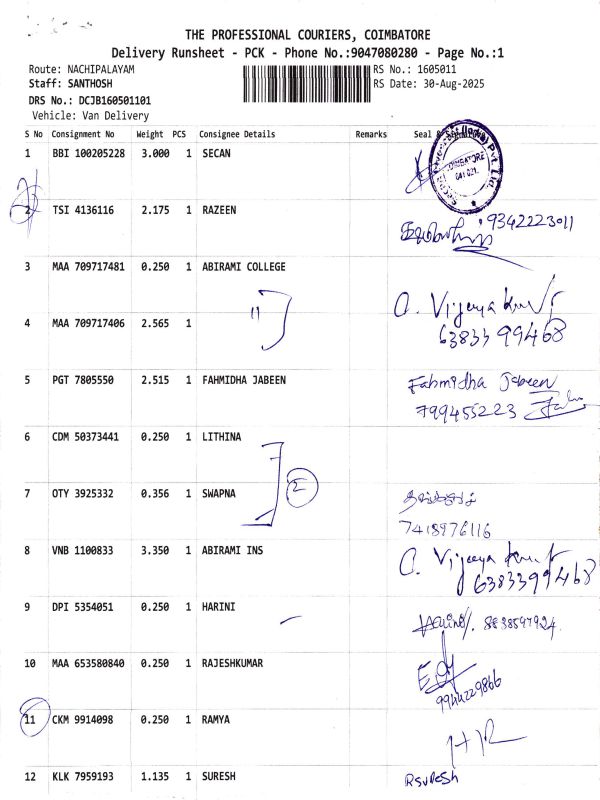 THE PROFESSIONAL COURIERS, COIMBATORE
Delivery Runsheet - PCK - Phone No.:9047080280 - Page No.:1
Route: NACHIPALAYAM RS No.: 1605011
Staff: SANTHOSH RS Date: 30-Aug-2025
DRS No.: DCJB160501101
Vehicle: Van Delivery
S No Consignment No Weight PCS Consignee Details Remarks Seal &
1 BBI 100205228 3.000 1 SECAN
COIMBATORE
641 021.
2 TSI 4136116 2.175 1 RAZEEN
9342223011
3 MAA 709717481 0.250 1 ABIRAMI COLLEGE
11 A. Vijayakumar
4 MAA 709717406 2.565 1 6383399468
5 PGT 7805550 2.515 1 FAHMIDHA JABEEN Fahmidha Jabeen
799455223
6 CDM 50373441 0.250 1 LITHINA
2
7 OTY 3925332 0.356 1 SWAPNA
7418976116
8 VNB 1100833 3.350 1 ABIRAMI INS A. Vijayakumar
6383399468
9 DPI 5354051 0.250 1 HARINI
Harini 8838597924
10 MAA 653580840 0.250 1 RAJESHKUMAR
9944229866
11 CKM 9914098 0.250 1 RAMYA
12 KLK 7959193 1.135 1 SURESH RSURESH